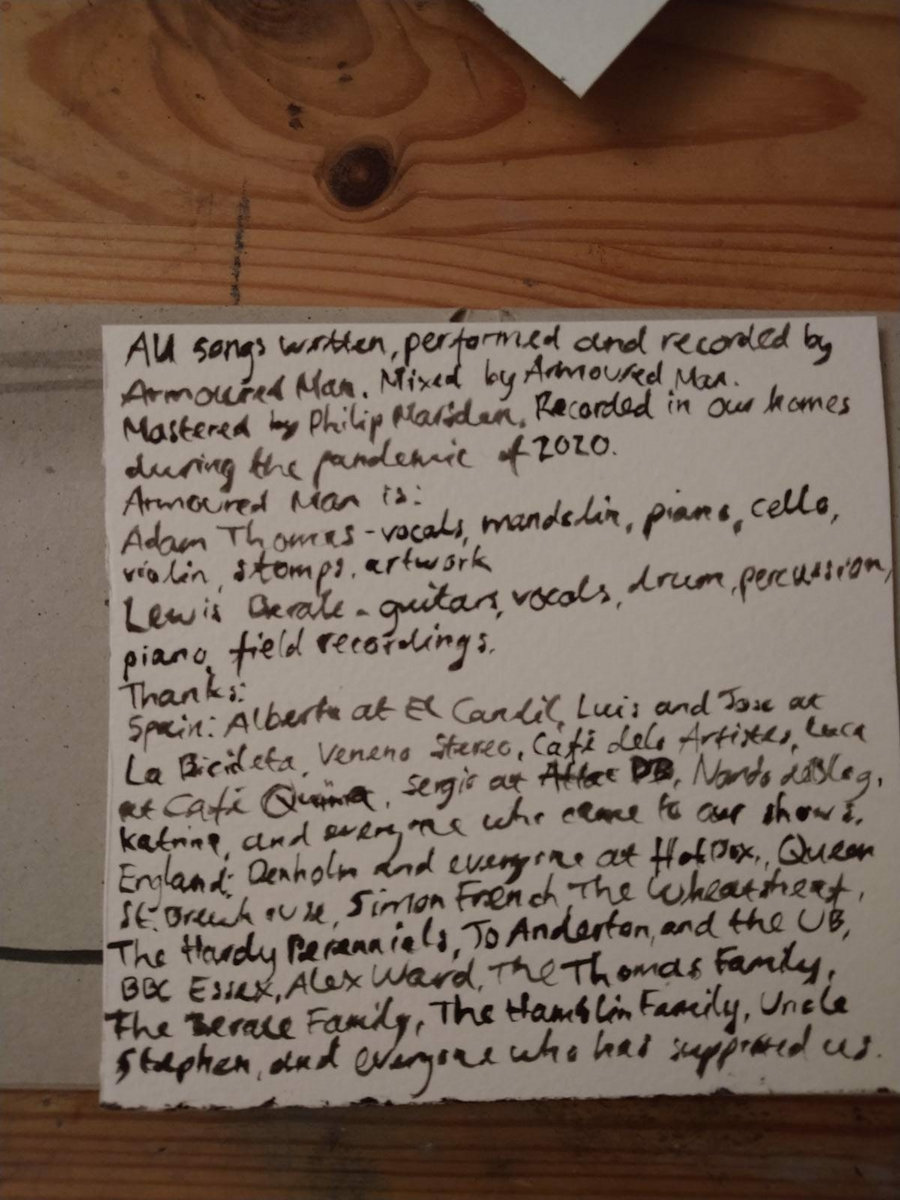 All songs written, performed and recorded by
Armoured Man. Mixed by Armoured Man.
Mastered by Philip Marsden. Recorded in our homes
during the pandemic of 2020.
Armoured Man is:
Adam Thomas - vocals, mandolin, piano, cello,
violin, stomps, artwork
Lewis - guitars, vocals, drum, percussion,
piano, field recordings.
Thanks:
Spain: Alberto at El Candil, Luis and Jose at
La Bicicleta, Veneno Stereo, Café dels Artistes, Luca
at Café, Sergio at
Katrina, and everyone who came to our shows.
England: Denholm and everyone at HotBox, Queen
St. Brewhouse, Simon French, The Wheatsheaf,
The Hardy Perennials, Jo Anderton, and the UB,
BBC Essex, Alex Ward, The Thomas Family,
The Family, The Hamblin Family, Uncle
Stephen, and everyone who has supported us.